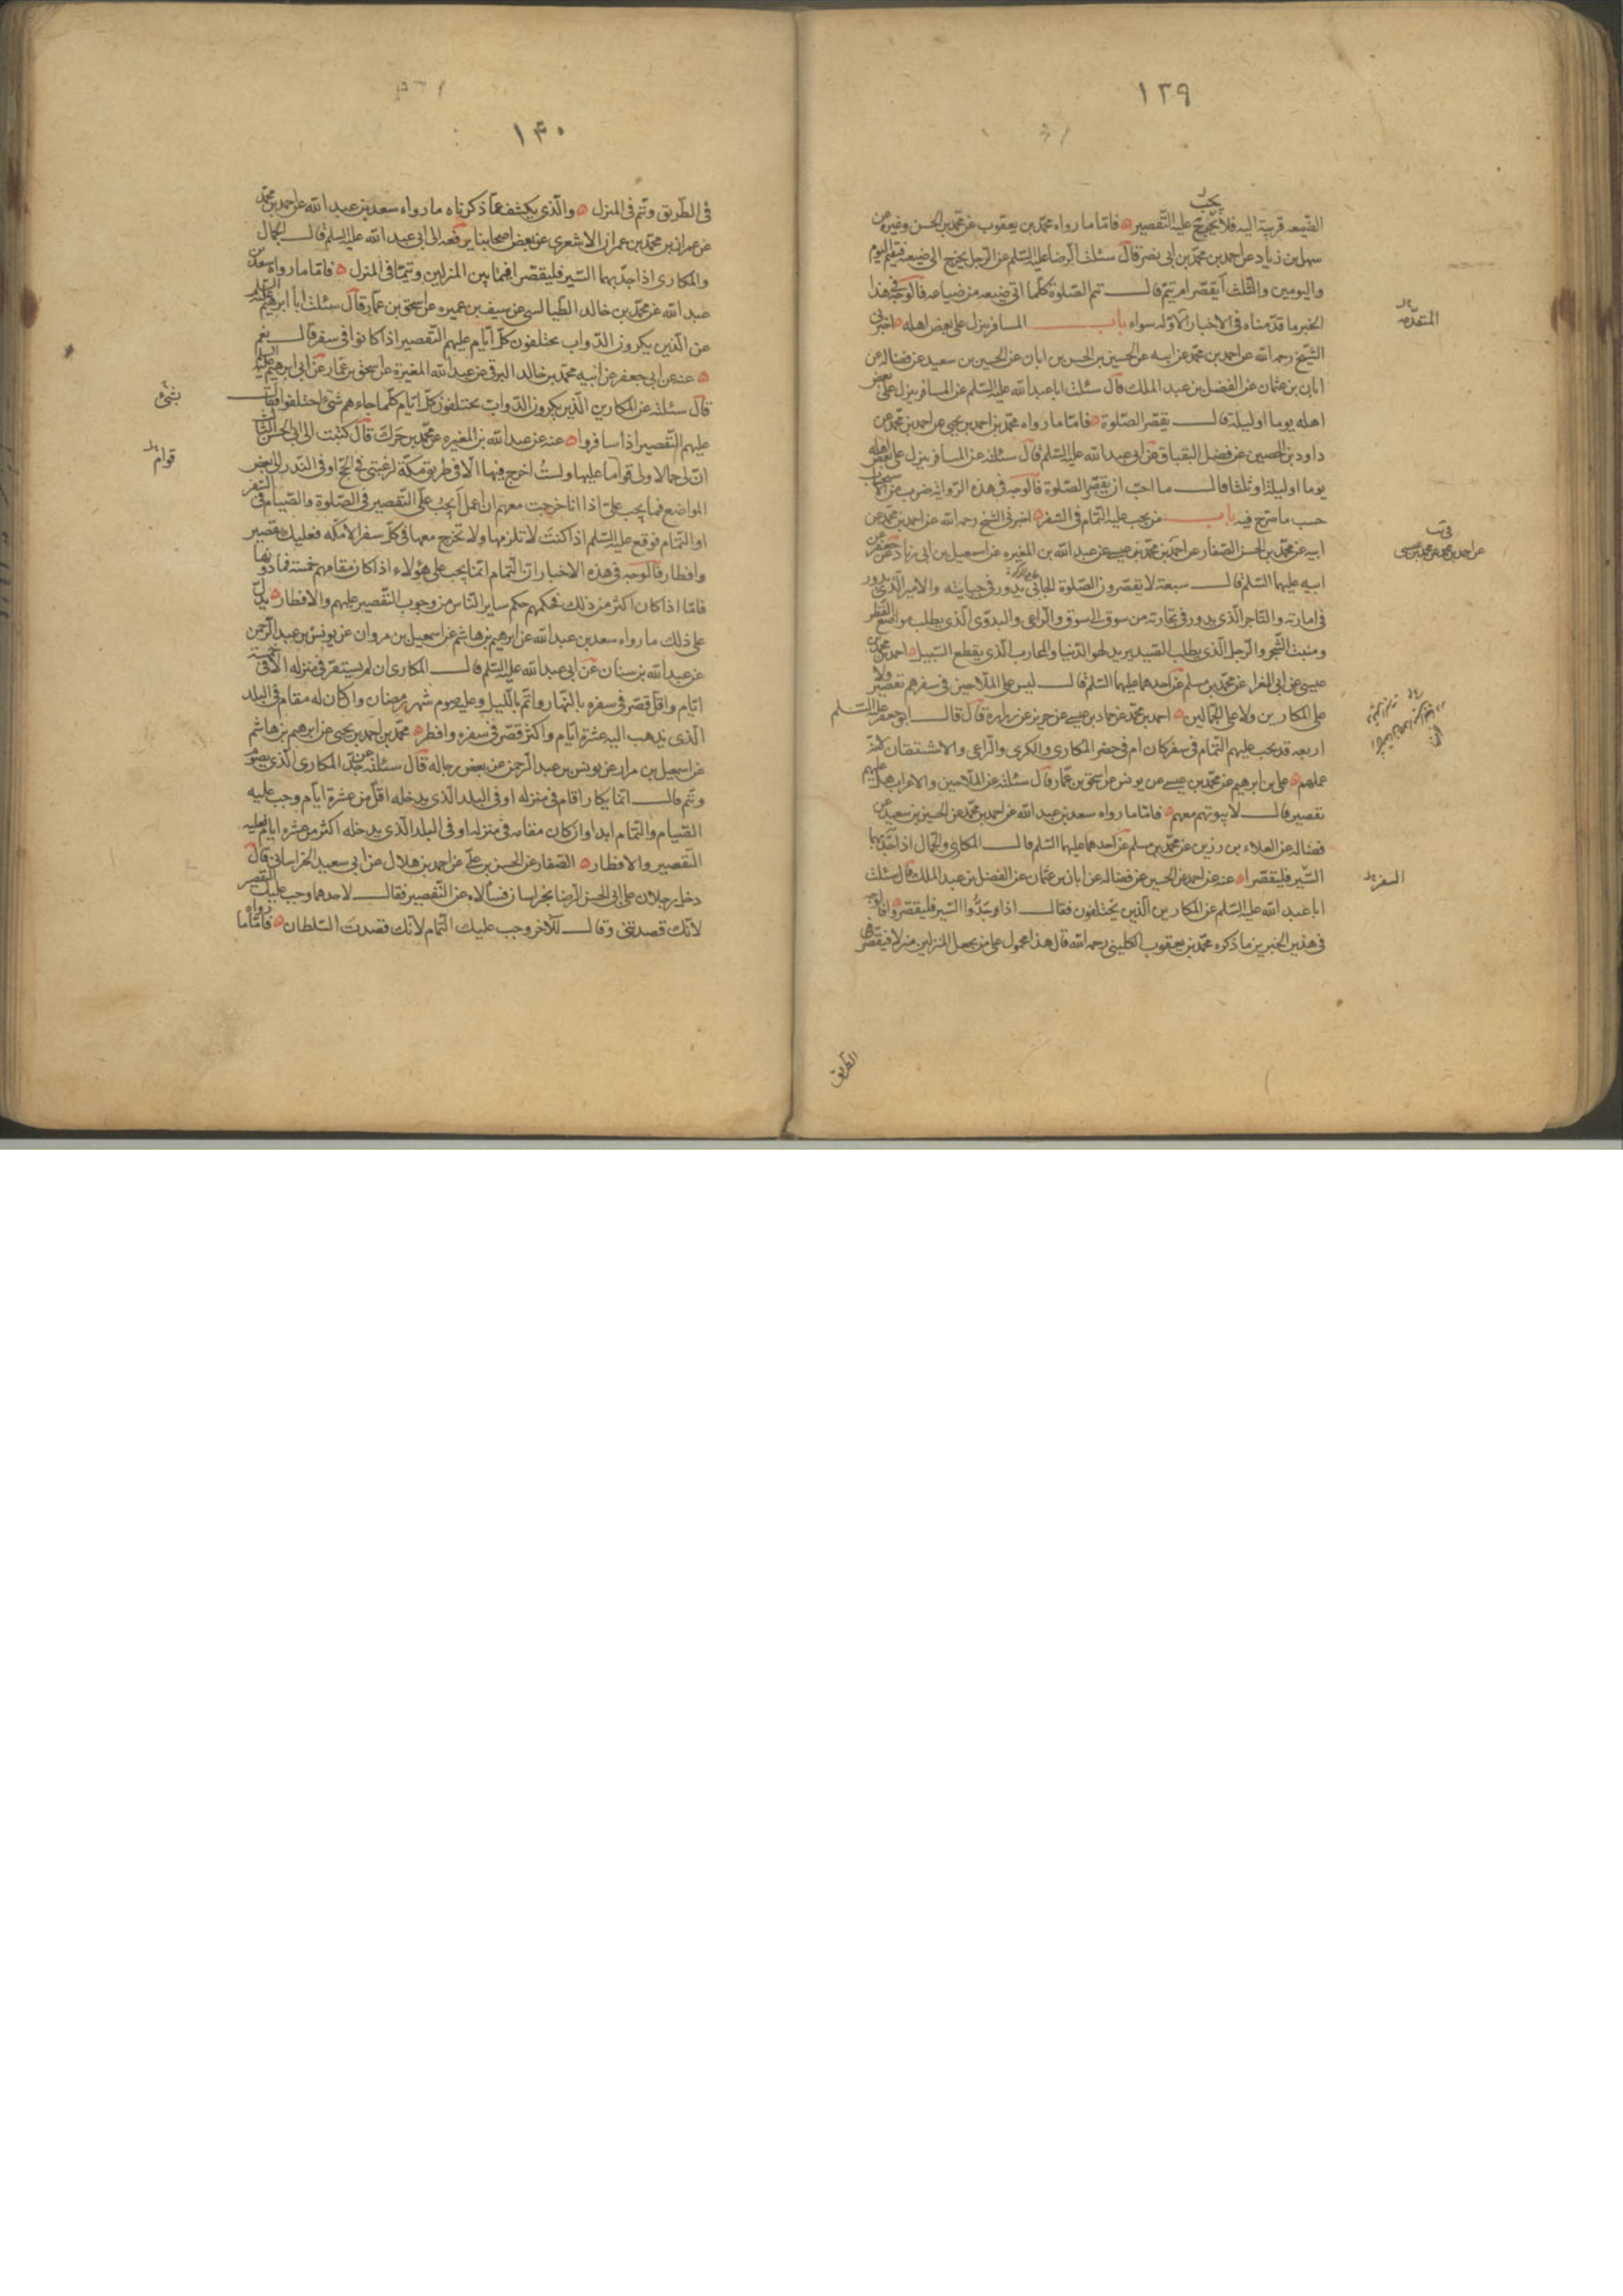 ١٢٩
يجب
الضيعه قريبة اليه فلا يجب عليه التقصير فاما ما رواه محمد بن يعقوب عن محمد بن الحسن وغيره عن
سهل بن زياد عن احمد بن محمد بن ابى نصر قال سئلت الرضا عليه السلم عن الرجل يخرج الى ضيعته فيقيم اليوم
واليومين والثلث أيقصر ام يتم قال يتم الصلوة كلما اتى ضيعه من ضياعه فالوجه فى هذا
الخبر ما قدمناه فى الاخبار الاوله سواء باب المسافر ينزل على بعض اهله اخبرنى
الشيخ رحمه الله عن احمد بن محمد عن ابيه عن الحسين بن الحسن بن ابان عن الحسين بن سعيد عن فضاله عن
ابان بن عثمان عن الفضل بن عبد الملك قال سئلت ابا عبد الله عليه السلم عن المسافر ينزل على بعض
اهله يوما او ليلة قال يقصر الصلوة فاما ما رواه محمد بن احمد بن يحيى عن احمد بن محمد عن
داود بن الحصين عن فضل البقباق عن ابى عبد الله عليه السلم قال سئلته عن المسافر ينزل على بعض اهله
يوما او ليلة او ثلثا قال ما احب ان يقصر الصلوة فالوجه فى هذه الرواية ضرب من الاستحباب
حسب ما صرح فيه باب من يجب عليه التمام فى السفر اخبرنى الشيخ رحمه الله عن احمد بن محمد عن
ابيه عن محمد بن الحسن الصفار عن احمد بن محمد بن عيسى عن عبد الله بن المغيره عن اسمعيل بن ابى زياد عن جعفر عن
ابيه عليهما السلم قال سبعة لا يقصرون الصلوة الجابى يدور فى جبايته والامير الذى يدور
فى امارته والتاجر الذى يدور فى تجارته من سوق الى سوق والراعى والبدوى الذى يطلب مواضع القطر
ومنبت الشجر والرجل الذى يطلب الصيد يريد لهو الدنيا والمحارب الذى يقطع السبيل احمد بن محمد بن
عيسى عن ابى المغرا عن محمد بن مسلم عن احدهما عليهما السلم قال ليس على الملاحين فى سفرهم تقصير ولا
على المكارين ولا على الجمالين احمد بن محمد عن حماد بن عيسى عن حريز عن زراره قال قال ابو جعفر عليه السلم
اربعه قد يجب عليهم التمام فى سفر كان ام فى حضر المكارى والكرى والراعى والاشتقان لانه
عملهم على بن ابرهيم عن محمد بن عيسى عن يونس عن اسحق بن عمار قال سئلته عن الملاحين والاعراب هل عليهم
تقصير قال لا بيوتهم معهم فاما ما رواه سعد بن عبد الله عن احمد بن محمد عن الحسين بن سعيد عن
فضاله عن العلاء بن رزين عن محمد بن مسلم عن احدهما عليهما السلم قال المكارى والجمال اذا جد بهما
السير فليقصرا عنه عن احمد عن الحسين عن فضاله عن ابان بن عثمان عن الفضل بن عبد الملك قال سئلت
ابا عبد الله عليه السلم عن المكارين الذين يختلفون فقال اذا وجدوا السير فليقصروا فالوجه
فى هذين الخبرين ما ذكره محمد بن يعقوب الكلينى رحمه الله قال هذا محمول على من يجعل المنزلين منزلا فيقصر
المتقدمه
عن احمد بن محمد عن محمد بن عيسى
السفر
الطريق
١۴٠
فى الطريق ويتم فى المنزل والذى يكشف عما ذكرناه ما رواه سعد بن عبد الله عن احمد بن محمد
عن عمران بن محمد بن عمران الاشعرى عن بعض اصحابنا يرفعه الى ابى عبد الله عليه السلم قال الجمال
والمكارى اذا جد بهما السير فليقصرا فيما بين المنزلين ويتما فى المنزل فاما ما رواه سعد بن
عبد الله عن محمد بن خالد الطيالسى عن سيف بن عميره عن اسحق بن عمار قال سئلت ابا ابرهيم عليه السلم
عن الذين يكرون الدواب يختلفون كل ايام عليهم التقصير اذا كانوا فى سفر قال نعم
عنه عن ابى جعفر عن ابيه محمد بن خالد البرقى عن عبد الله المغيرة عن اسحق بن عمار عن ابى ابرهيم عليه السلم
قال سئلته عن المكارين الذين يكرون الدواب يختلفون كل ايام كلما جاءهم شىء اختلفوا فقال
عليهم التقصير اذا سافروا عنه عن عبد الله بن المغيره عن محمد بن جزك قال كتبت الى ابى الحسن الثالث
ان لى جمالا ولى قواما عليها ولست اخرج فيها الا فى طريق مكة لرغبتى فى الحج او فى الندره الى بعض
المواضع فما يجب على اذا انا خرجت معهم ان اعمل أيجب على التقصير فى الصلوة والصيام فى السفر
او التمام فوقع عليه السلم اذا كنت لا تلزمها ولا تخرج معها فى كل سفر الا مكه فعليك تقصير
وافطار فالوجه فى هذه الاخبار ان التمام انما يجب على هؤلاء اذا كان مقامهم خمسة فما دونها
فاما اذا كان اكثر من ذلك فحكمهم حكم ساير الناس من وجوب التقصير عليهم والافطار يدل
على ذلك ما رواه سعد بن عبد الله عن ابرهيم بن هاشم عن اسمعيل بن مروان عن يونس بن عبد الرحمن
عن عبد الله بن سنان عن ابى عبد الله عليه السلم قال المكارى ان لم يستقر فى منزله الا خمسة
ايام واقل قصر فى سفره بالنهار واتم بالليل وعليه صوم شهر رمضان وان كان له مقام فى البلد
الذى يذهب اليه عشرة ايام واكثر قصر فى سفره وافطر محمد بن احمد بن يحيى عن ابرهيم بن هاشم
عن اسمعيل بن مرار عن يونس بن عبد الرحمن عن بعض رجاله قال سئلته عن حد المكارى الذى يصوم
ويتم قال ايما مكار اقام فى منزله او فى البلد الذى يدخله اقل من عشرة ايام وجب عليه
الصيام والتمام ابدا وان كان مقامه فى منزله او فى البلد الذى يدخله اكثر من عشره ايام فعليه
التقصير والافطار الصفار عن الحسن بن على عن احمد بن هلال عن ابى سعيد الخراسانى قال
دخل رجلان على ابى الحسن الرضا بخراسان فسألاه عن التقصير فقال لاحدهما وجب عليك التقصير
لانك قصدتنى وقال للآخر وجب عليك التمام لانك قصدت السلطان فاما ما رواه
قوام